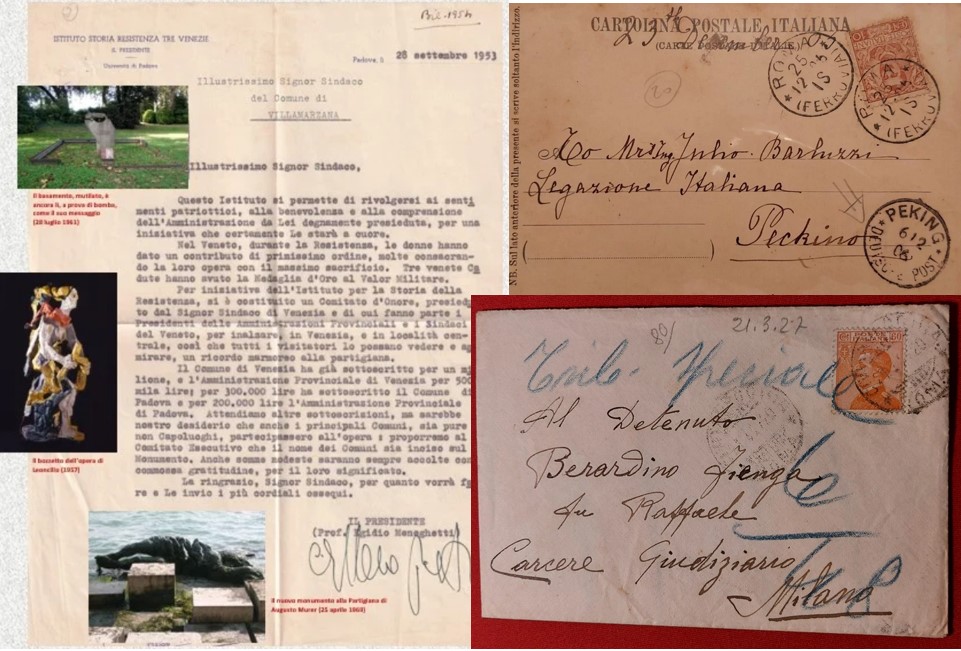 Bil-1954
ISTITUTO STORIA RESISTENZA TRE VENEZIE
IL PRESIDENTE
Università di Padova
Padova, li 28 settembre 1953
Illustrissimo Signor Sindaco
del Comune di
VILLAMARZANA
Illustrissimo Signor Sindaco,
Questo Istituto si permette di rivolgersi ai senti
menti patriottici, alla benevolenza e alla comprensione
dell'Amministrazione da Lei degnamente presieduta, per una
iniziativa che certamente Le starà a cuore.
Nel Veneto, durante la Resistenza, le donne hanno
dato un contributo di primissimo ordine, molte consacran-
do la loro opera con il massimo sacrificio. Tre venete Ca
dute hanno avuto la Medaglia d'Oro al Valor Militare.
Per iniziativa dell'Istituto per la Storia della
Resistenza, si è costituito un Comitato d'Onore, presied
to dal Signor Sindaco di Venezia e di cui fanno parte i
Presidenti delle Amministrazioni Provinciali e i Sindaci
del Veneto, per inalzare, in Venezia, e in località cen-
trale, così che tutti i visitatori lo possano vedere e am
mirare, un ricordo marmoreo alla partigiana.
Il Comune di Venezia ha già sottoscritto per un mi
lione, e l'Amministrazione Provinciale di Venezia per 500
mila lire; per 300.000 lire ha sottoscritto il Comune di
Padova e per 200.000 lire l'Amministrazione Provinciale
di Padova. Attendiamo altre sottoscrizioni, ma sarebbe
nostro desiderio che anche i principali Comuni, sia pure
non Capoluoghi, partecipassero all'opera: proporremo al
Comitato Esecutivo che il nome dei Comuni sia inciso sul
Monumento. Anche somme modeste saranno sempre accolte con
commossa gratitudine, per il loro significato.
La ringrazio, Signor Sindaco, per quanto vorrà fa
re e Le invio i più cordiali ossequi.
IL PRESIDENTE
(Prof. Egidio Meneghetti)
Il basamento, mutilato, è
ancora lì, a prova di bomba,
come il suo messaggio
(28 luglio 1961)
Il bozzetto dell'opera di
Leoncillo (1957)
Il nuovo monumento alla Partigiana di
Augusto Murer (21 aprile 1969)
CARTOLINA POSTALE ITALIANA
(CARTE POSTALE D'ITALIE)
NB. Sul lato anteriore della presente si scrive soltanto l'indirizzo.
ROMA
25
12
15
(FERROVIA)
ROMA
12
15
(FERROVIA)
20
To Mr Ing Julio Barluzzi
Legazione Italiana
Peckino
PEKING
6 12
DEUTSCHE POST
80/
21.3.27
Trib. Speciale
Al Detenuto
Berardino Fienga
fu Raffaele
Carcere Giudiziario
Milano